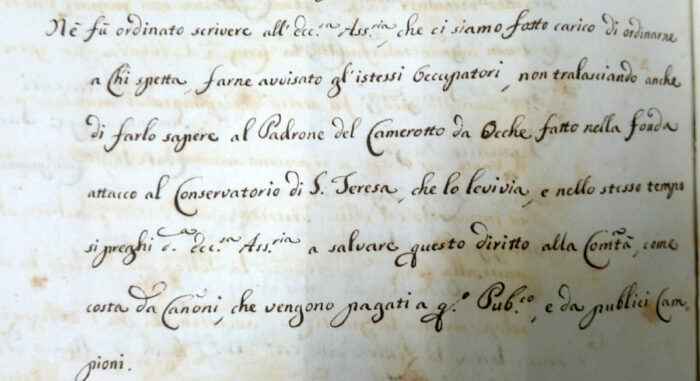 Nè fù ordinato scrivere all' ecc.sa Ass.ria che ci siamo fatto carico di ordinarne
a Chi spetta, farne avvisato gl'istessi Occupatori, non tralasciando anche
di farlo sapere al Padrone del Camerotto da Ocche fatto nella fonda
attacco al Conservatorio di S. Teresa, che lo levi via, e nello stesso tempo
si preghi d.a ecc.sa Ass.ria a salvare questo diritto alla Comtà, come
costa da Canoni, che vengono pagati a q.o Pub.co, e da publici Cam=
pioni.